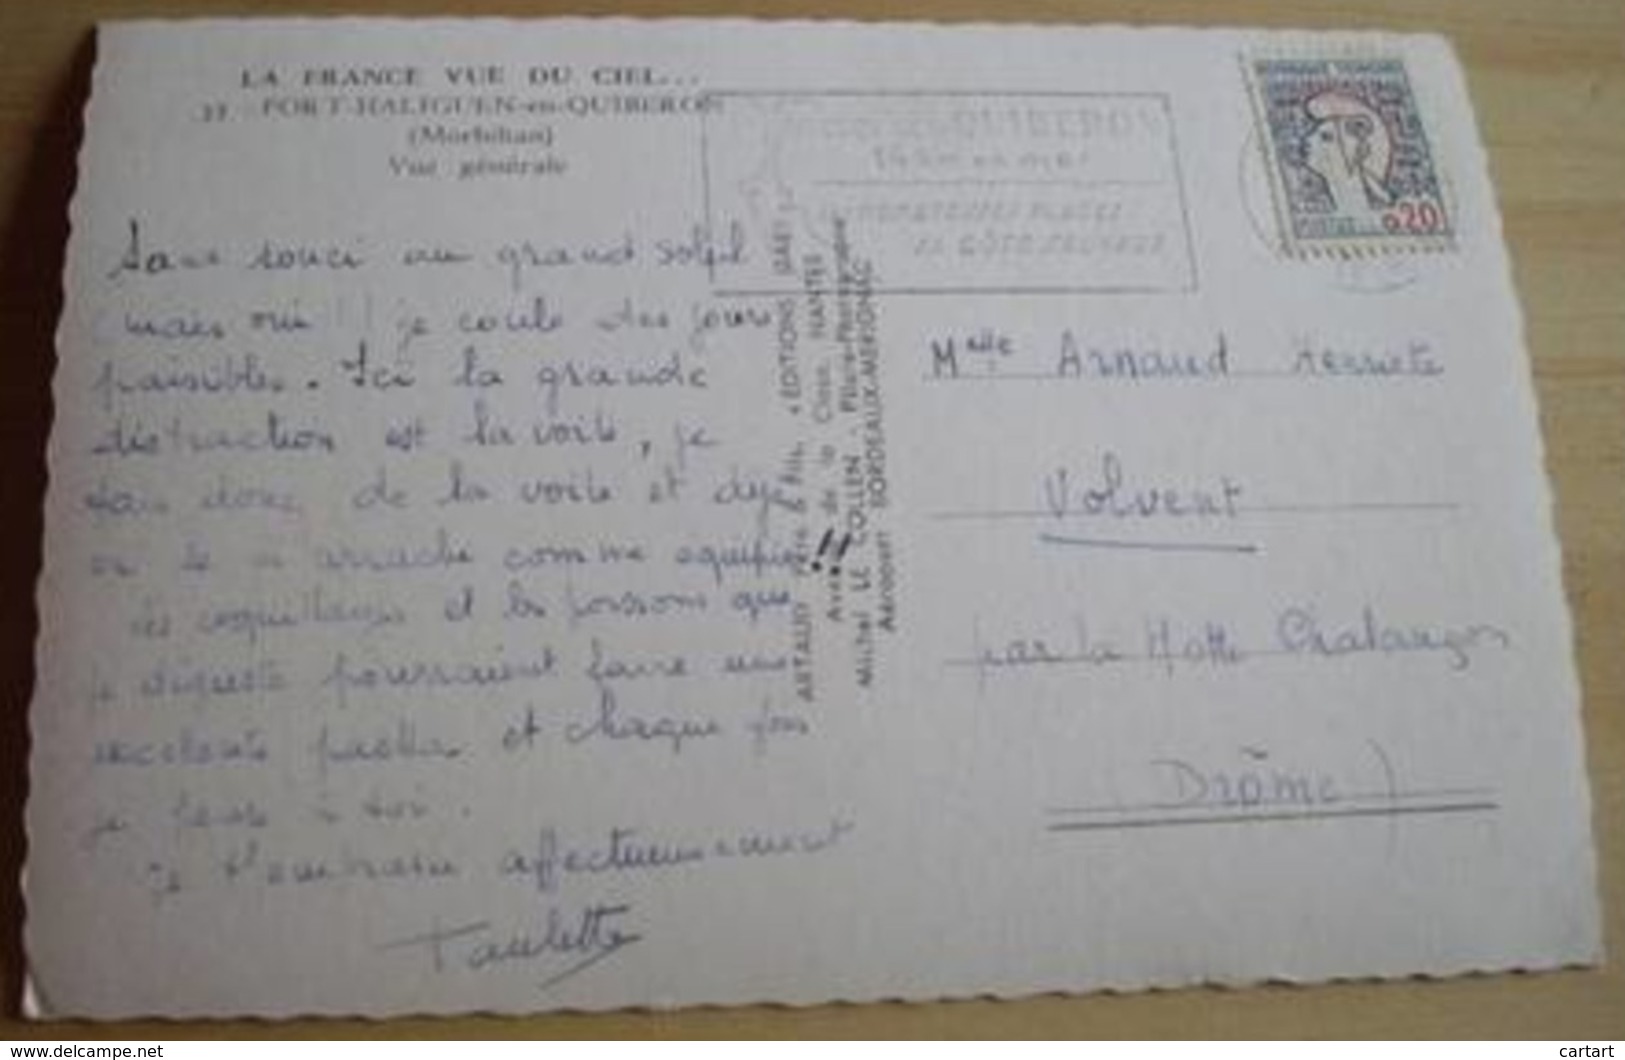 LA FRANCE VUE DU CIEL...
PORT-HALIGUEN-en-QUIBERON
(Morbihan)
Vue générale
Sans souci au grand soleil
mais oui je coule des jours
paisibles. Ici la grande
distraction est la voile, je
fais donc de la voile et déjà
on arrache comme équipier
les coquillages et les poissons que
je déguste pourraient faire une
excellente paella et chaque fois
je pense à toi.
Je t'embrasse affectueusement
Paulette
ARTAUD Père & Fils, « EDITIONS GABY »
de la Close, NANTES
Michel LE COLLEN - Pilote-Photographe
Aéroport BORDEAUX-MERIGNAC
QUIBERON
14 km en mer
PLAGES
SA CÔTE SAUVAGE
REPUBLIQUE FRANÇAISE
POSTES
0,20
Melle Arnaud Henriette
Volvent
par la Motte Chalançon
(Drôme)
cartart